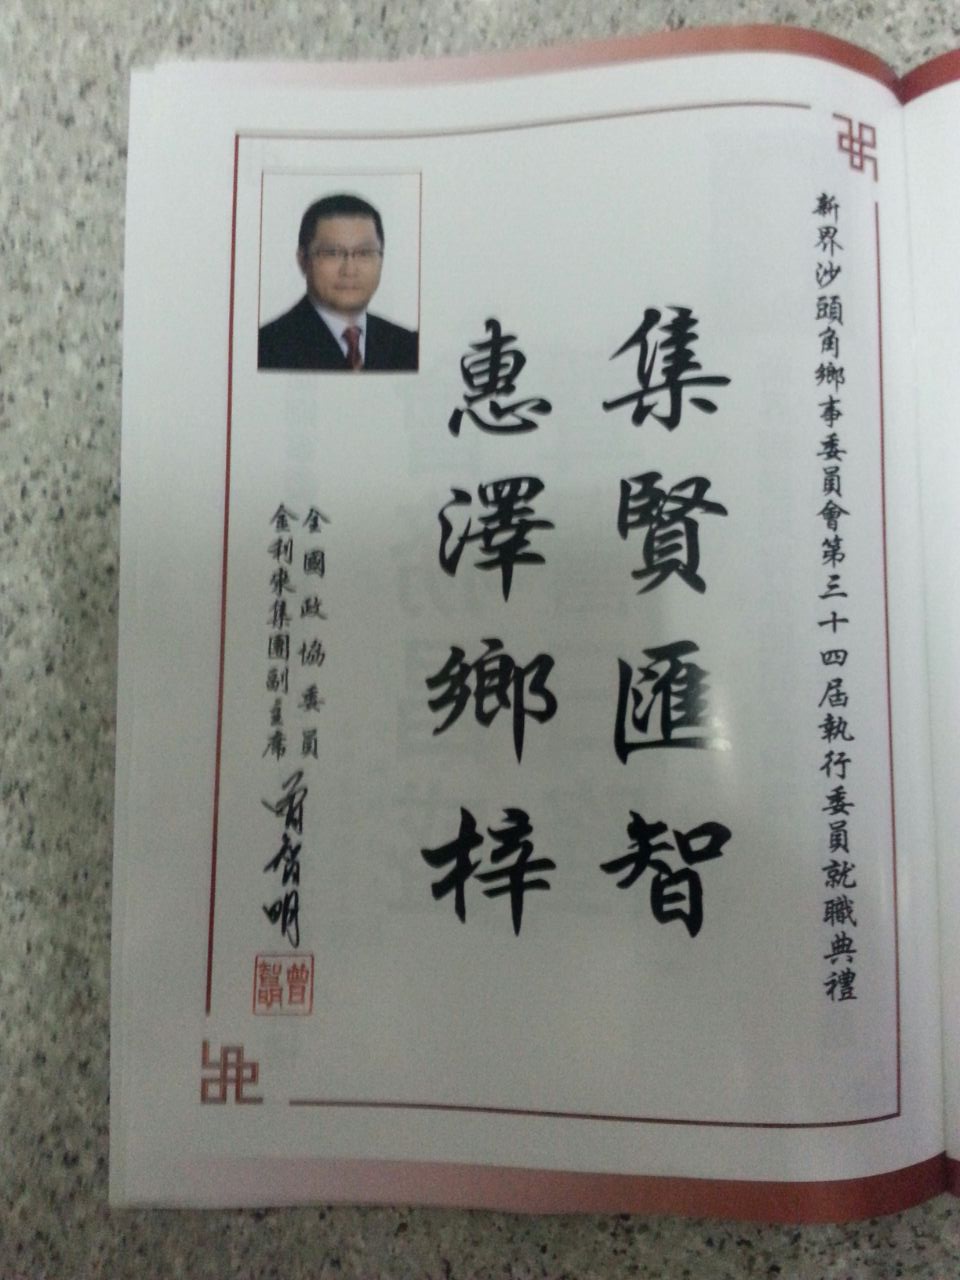 新界沙頭角鄉事委員會第三十四屆執行委員就職典禮
集賢匯智
惠澤鄉梓
全國政協委員
金利來集團副主席
曾智明
曾智明